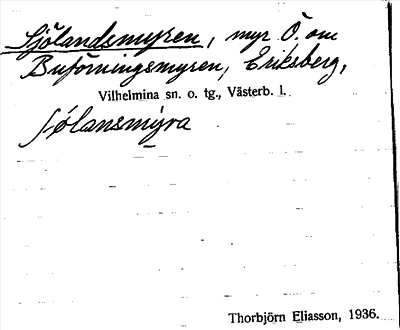 Sjölandsmyren, myr Ö. om
Buförningsmyren, Eriksberg,
Vilhelmina sn. o. tg., Västerb. l.
ʃølansmyra
Thorbjörn Eliasson, 1936.